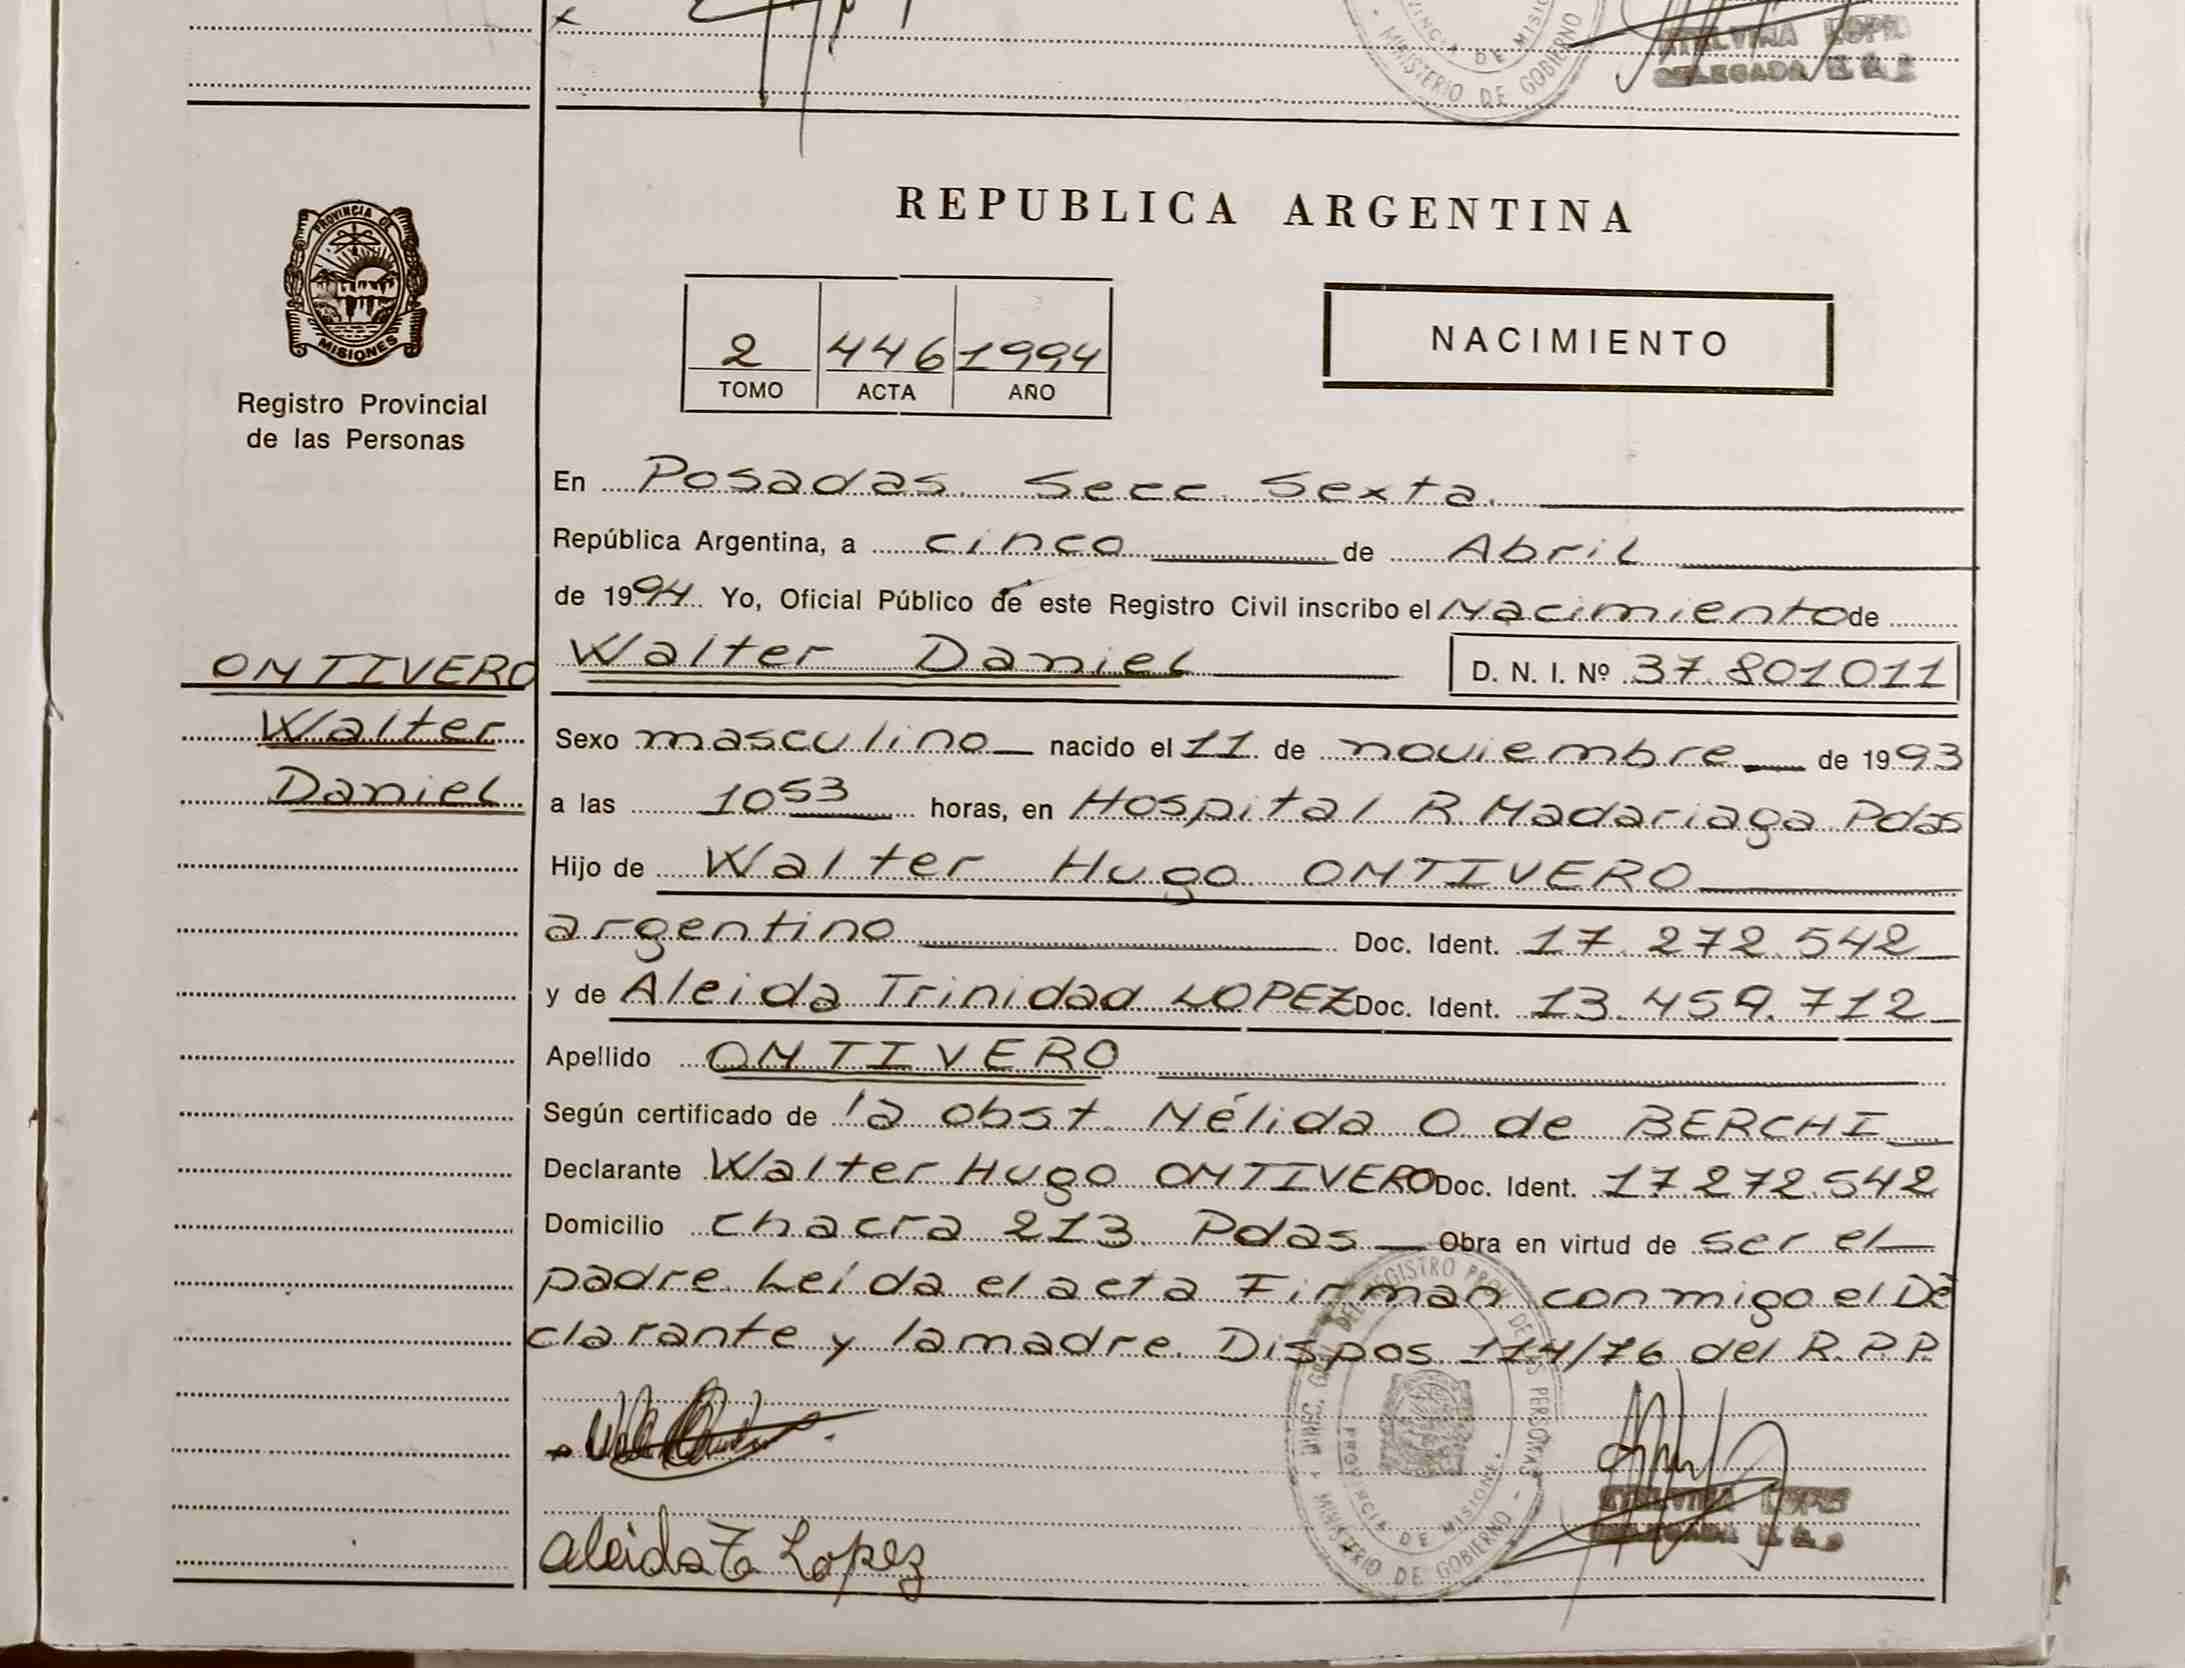 MINISTERIO DE GOBIERNO
DELEGADA
PROVINCIA DE
MISIONES
Registro Provincial
de las Personas
REPUBLICA ARGENTINA
2 446 1994
TOMO ACTA AÑO
NACIMIENTO
En Posadas. Secc. Sexta.
República Argentina, a cinco de Abril
de 1994 Yo, Oficial Público de este Registro Civil inscribo el Nacimiento de
ONTIVERO
Walter
Daniel
Walter Daniel D. N. I. Nº 37.801011
Sexo masculino nacido el 11 de noviembre de 1993
a las 10 53 horas, en Hospital R. Madariaga Pdas
Hijo de Walter Hugo ONTIVERO
argentino Doc. Ident. 17.272.542
y de Aleida Trinidad LOPEZ Doc. Ident. 13.459.712
Apellido ONTIVERO
Según certificado de la obst. Nélida O. de BERCHI
Declarante Walter Hugo ONTIVERO Doc. Ident. 17.272.542
Domicilio chacra 213 Pdas Obra en virtud de ser el
padre. Leída el acta Firman conmigo el De
clarante y la madre. Dispos. 114/76 del R.P.P.
DEL REGISTRO PROV. DE LAS PERSONAS
PROVINCIA DE MISIONES
MINISTERIO DE GOBIERNO
DELEGADA
Aleida T. Lopez